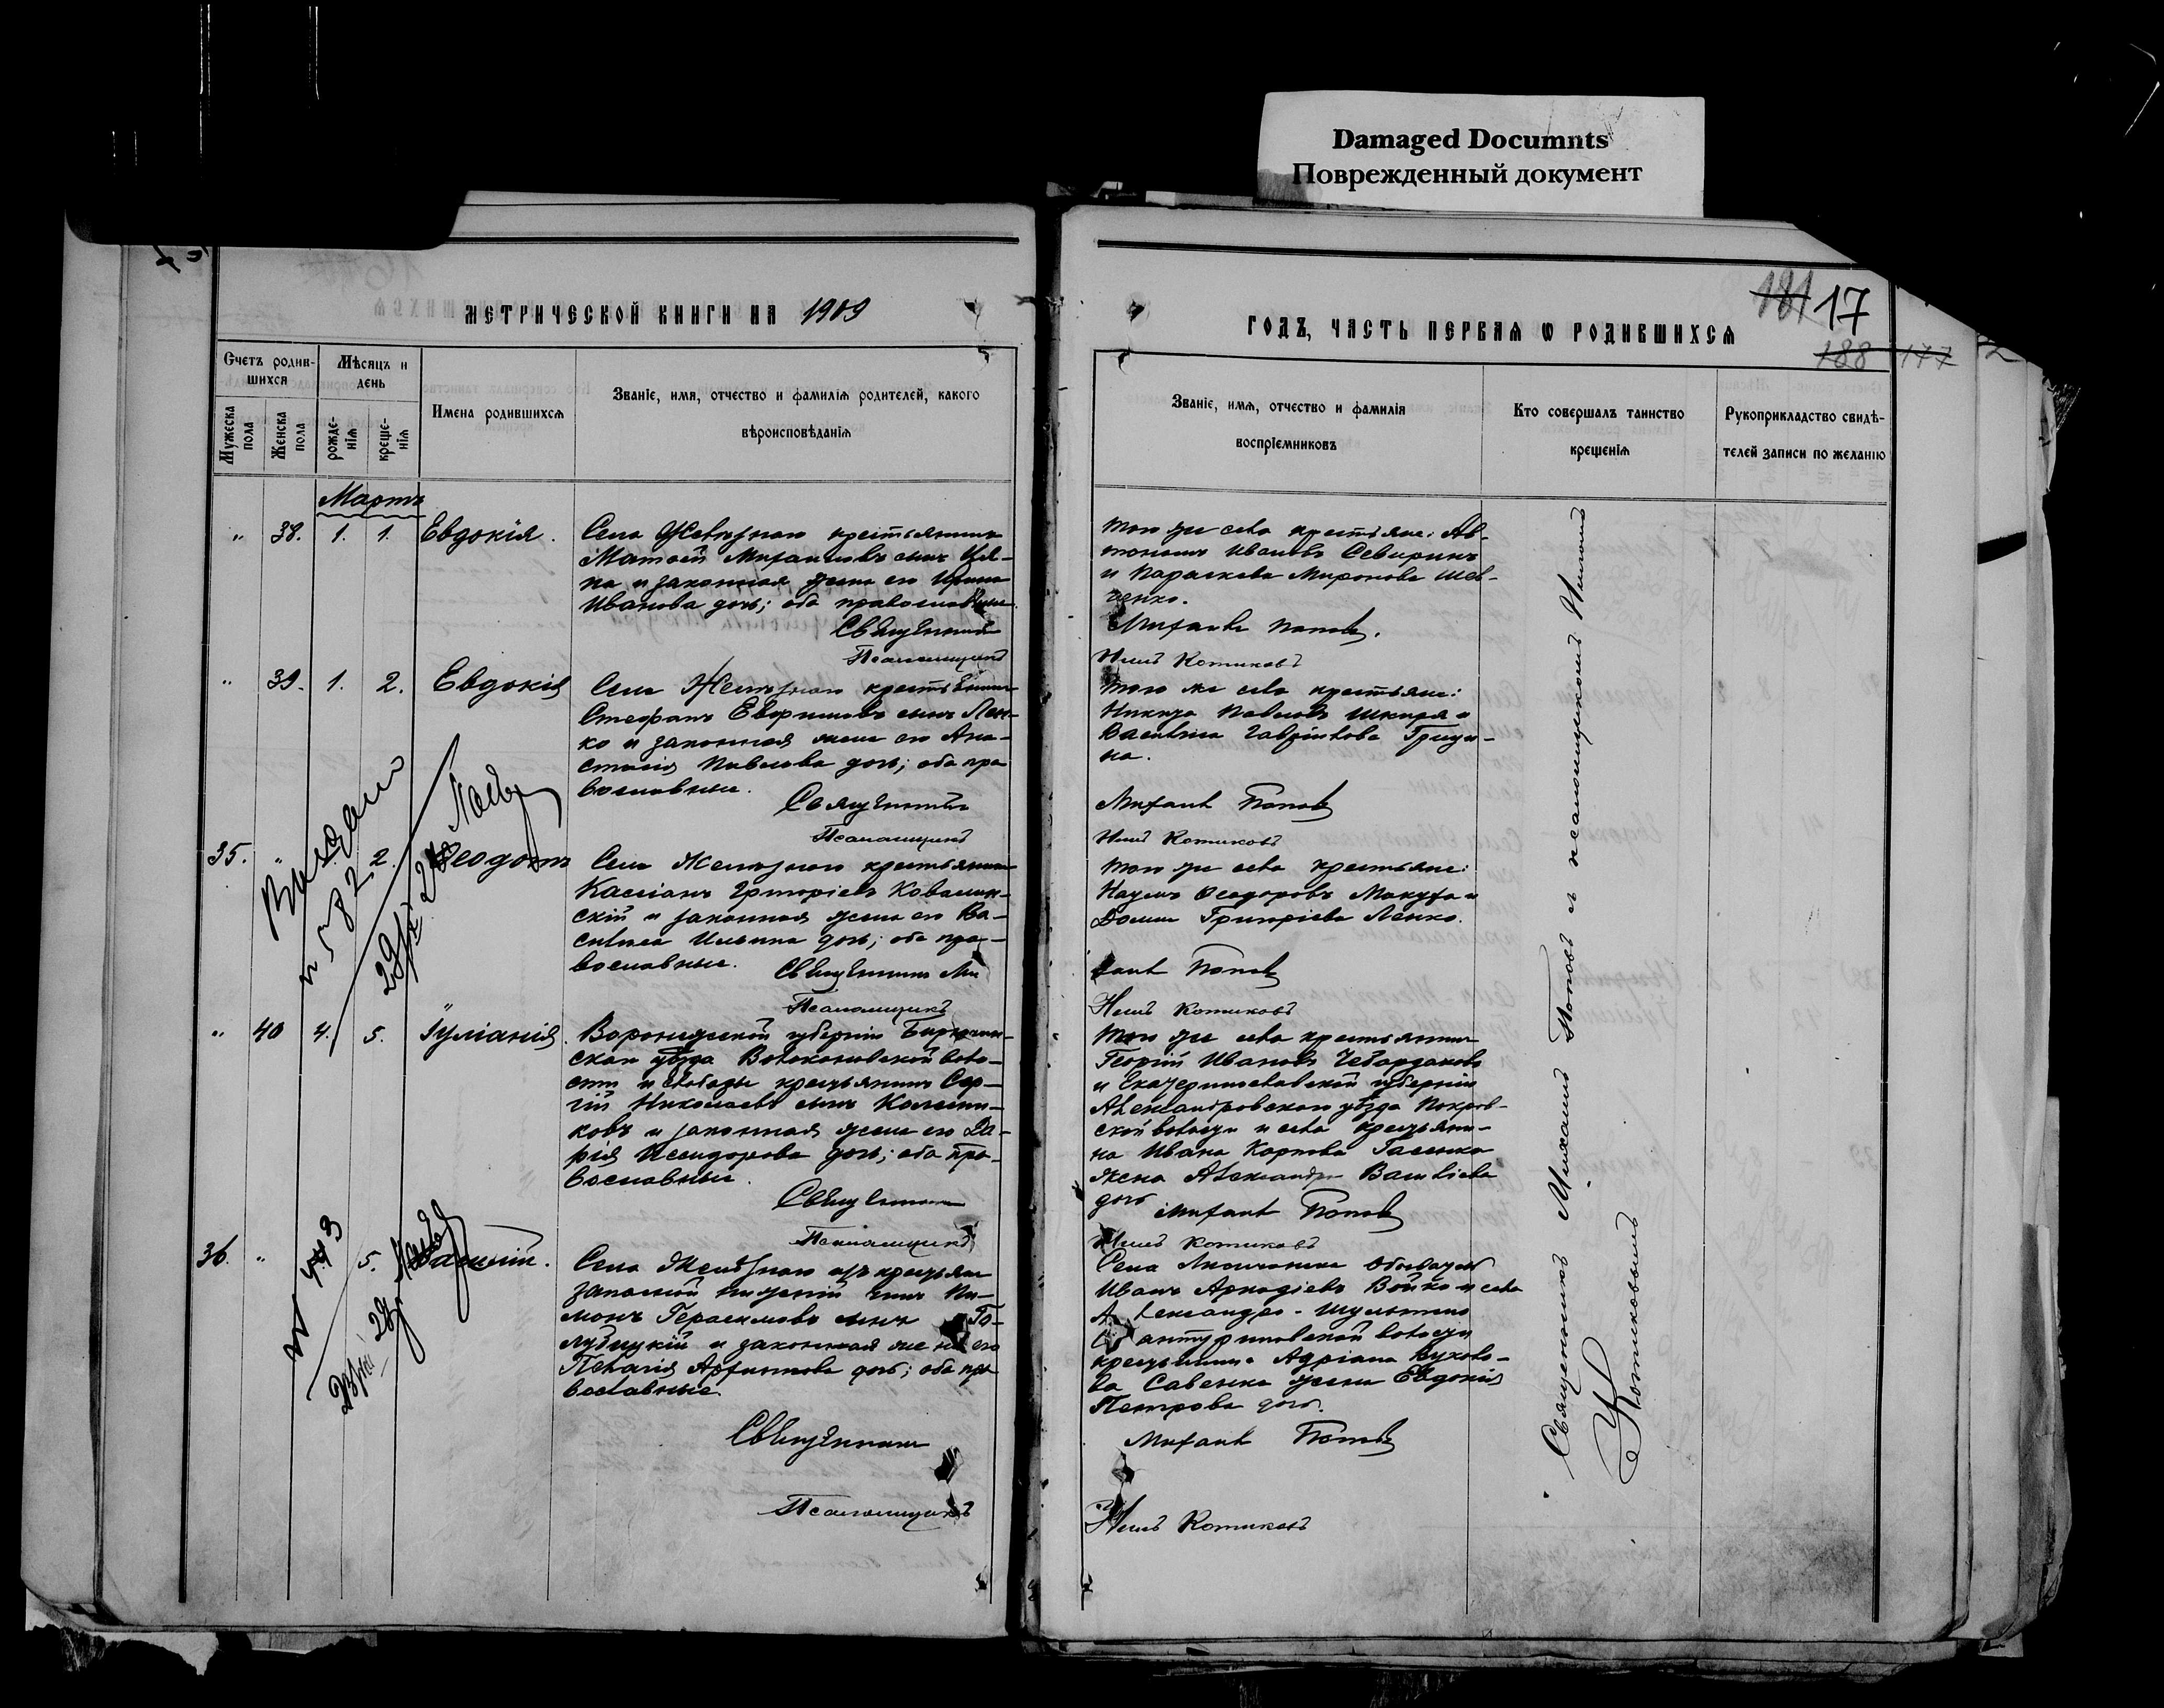 Damaged Documnts
Поврежденный документ
МЕТРИЧЕСКОЙ КНИГИ НА 1909
ГОДЪ, ЧАСТЬ ПЕРВАЯ Ѡ РОДИВШИХСЯ
181 17
188 177
Счетъ родив-
шихся
Мѣсяцъ и
день
Мужеска
пола
Женска
пола
рожде-
нія
креще-
нія
Имена родившихся
Званіе, имя, отчество и фамилія родителей, какого
вѣроисповѣданія
Званіе, имя, отчество и фамилія
воспріемниковъ
Кто совершалъ таинство
крещенія
Рукоприкладство свидѣ-
телей записи по желанію
Мартъ
" 38. 1. 1. Евдокія.
Села Желѣзнаго крестьянинъ
Михаиловъ сынъ
на и законная жена его Ирина
Иванова дочь; оба православные.
Священникъ
Псаломщикъ
того же села крестьяне: Ав-
тономъ Ивановъ Северинъ
и Параскева Миронова Шев-
ченко.
Михаилъ Поповъ.
Котиковъ
" 39. 1. 2. Евдокія
Села Желѣзнаго крестьянинъ
Стефанъ Евфимовъ сынъ Лен-
ко и законная жена его Ана-
стасія Павлова дочь; оба пра
вославные.
Священникъ
Псаломщикъ
того же села крестьяне:
Никита Павловъ Шкиря и
Василиса Гавріилова Грици-
на.
Михаилъ Поповъ
Котиковъ
35. " 2. Ѳеодотъ
Села Желѣзнаго крестьянинъ
Кассіанъ Григоріевъ Ковалин-
скій и законная жена его Ва-
силиса Ильина дочь; оба пра-
вославные.
Священникъ Ми
Псаломщикъ
того же села крестьяне:
Наумъ Ѳеодоровъ Макуха и
Домна Григоріева Ленко.
хаилъ Поповъ
Котиковъ
" 40 4. 5. Іуліанія.
Воронежской губерніи Бирючин-
скаго уѣзда Волоконовской воло-
сти и слободы крестьянинъ Сер-
гій Николаевъ сынъ Колесни-
ковъ и законная жена его Да-
рія Исидорова дочь; оба пра-
вославные.
Священникъ
Псаломщикъ
того же села крестьянинъ
Георгій Ивановъ Чебардаковъ
и Екатеринославской губерніи
Александровскаго уѣзда Покров-
ской волости и села крестьяни-
на Ивана Карпова Галенка
жена Александра Васильева
дочь
Михаилъ Поповъ
Котиковъ
36. " 5. Василій.
Села Желѣзнаго изъ крестьянъ
запасной нижній чинъ Пи-
монъ Герасимовъ сынъ Го-
лубицкій и законная жена его
Пелагія дочь; оба пра
вославные.
Священникъ
Псаломщикъ
Села обыватель
Иванъ Аркадіевъ Бойко и села
Александро-Шультино
волости
крестьянина Адріана
ва Савенка жена Евдокія
Петрова дочь.
Михаилъ Поповъ
Котиковъ
Священникъ Михаилъ Поповъ и псаломщикомъ
Котиковымъ
Выдано
№ 582
№ 443